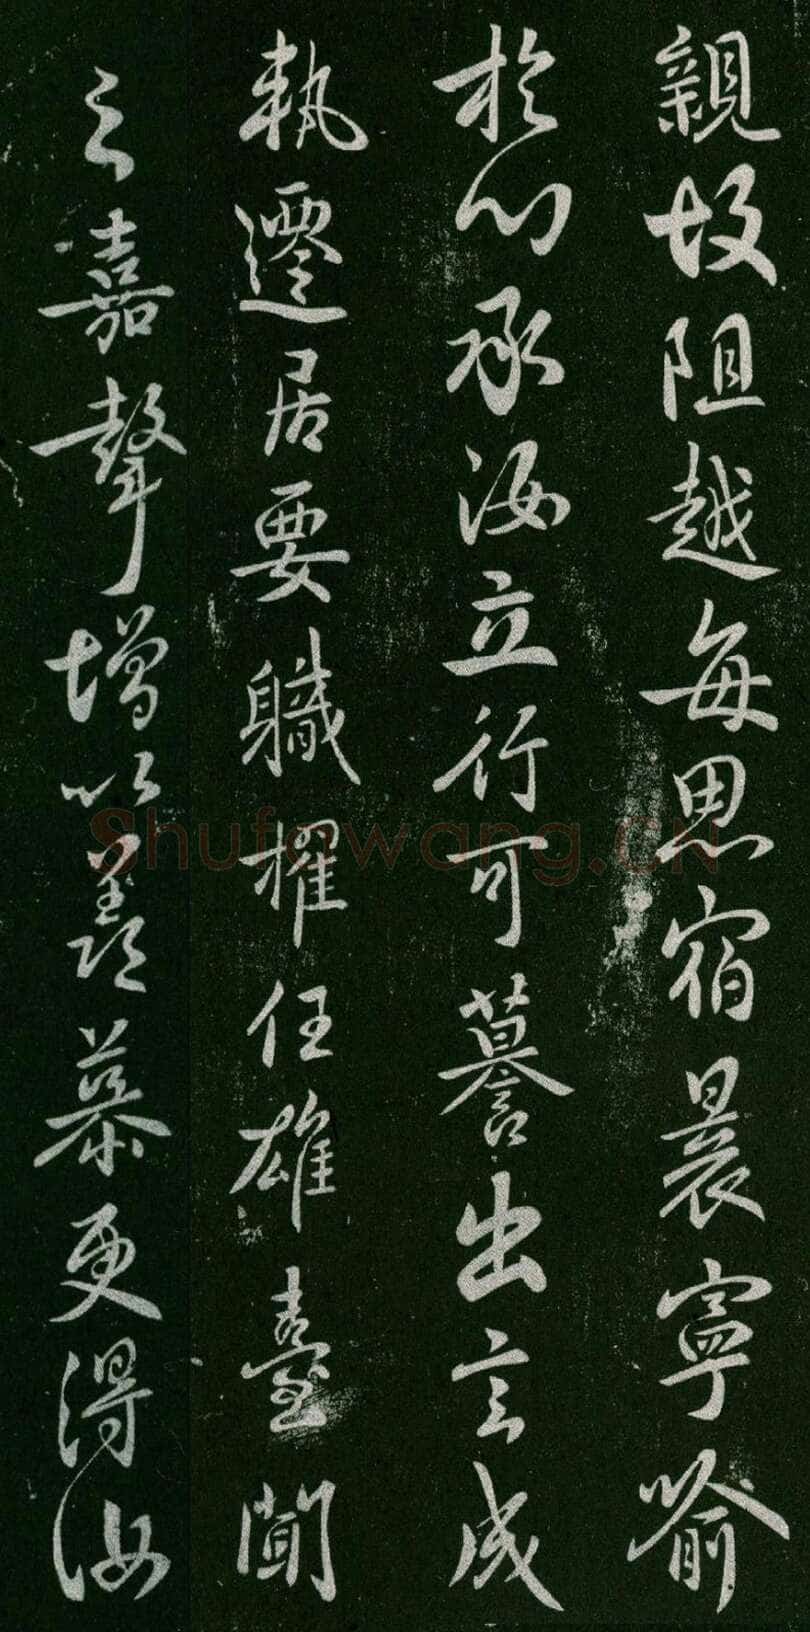 親故阻越每思宿晨寧喻
於心承汝立行可謩出言成
軌遷居要軄擢任雄臺聞
之嘉聲增以羨慕更得汝
Shufawang.CN